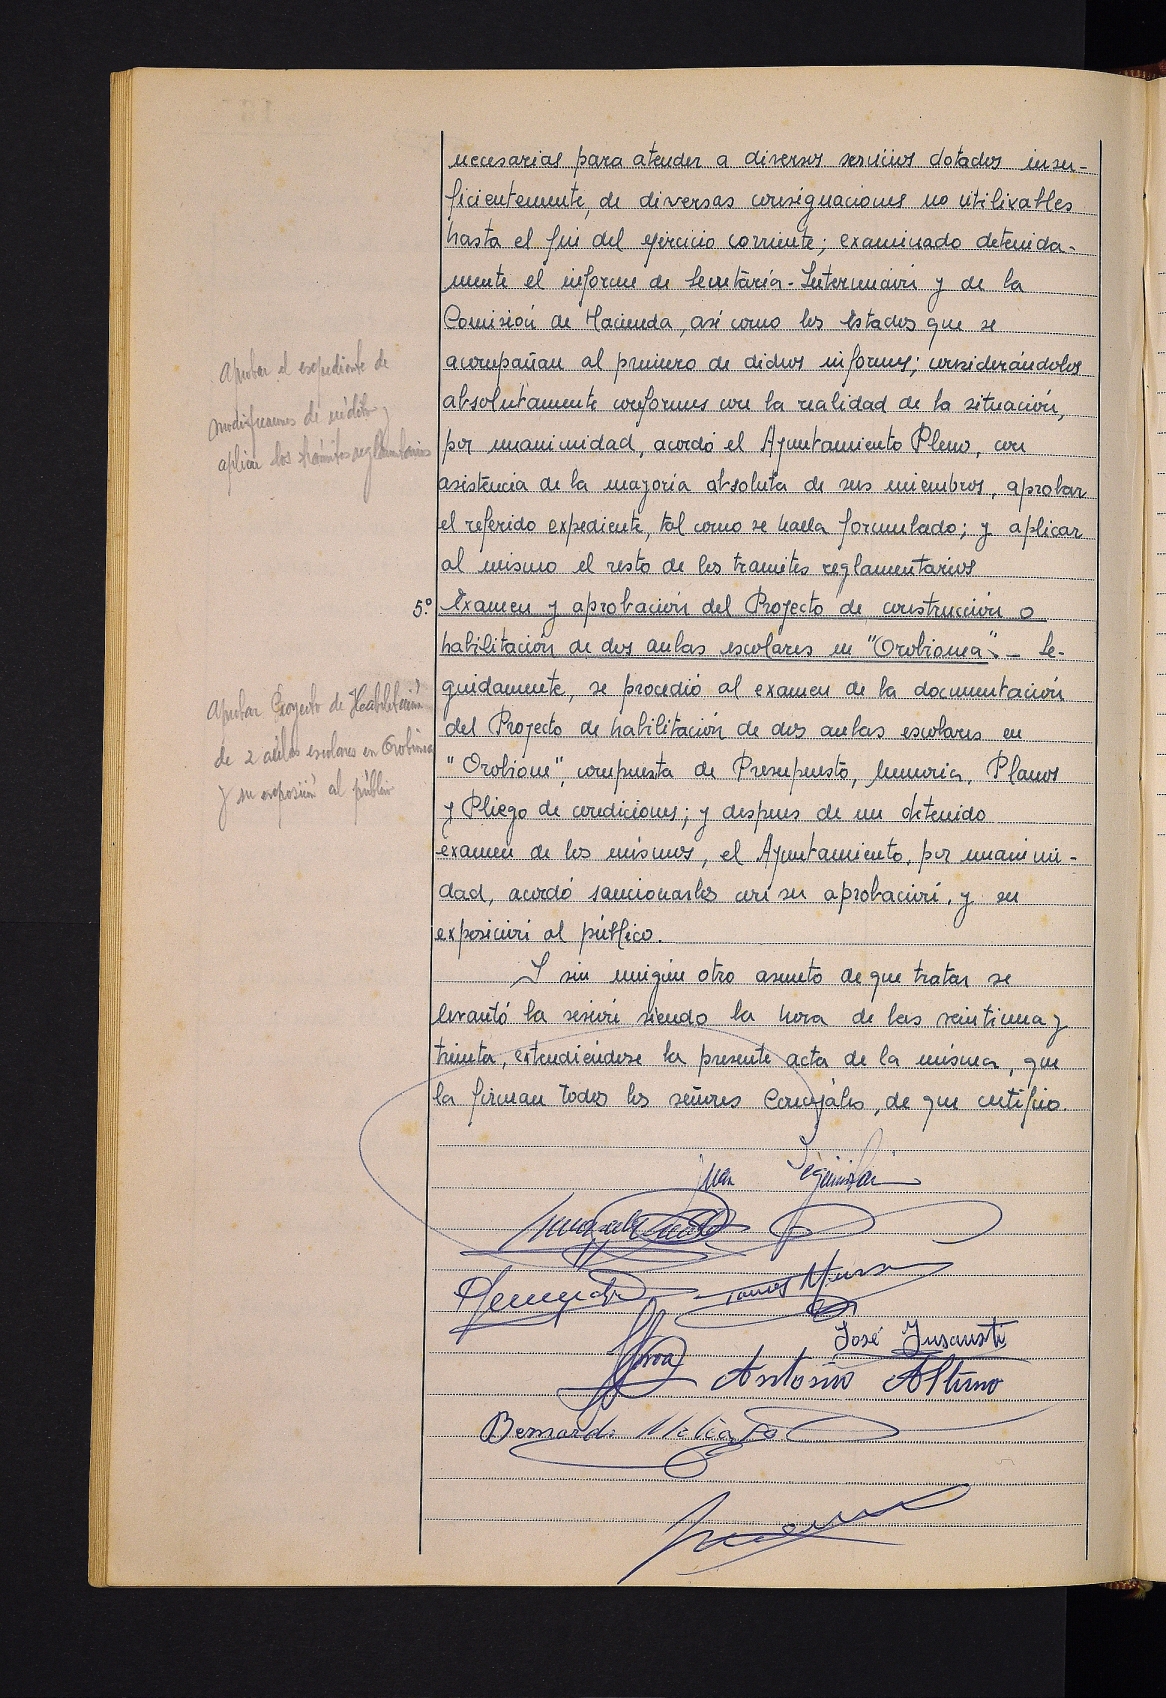 necesarias para atender a diversos servicios dotados insu-
ficientemente, de diversas consignaciones no utilizables
hasta el fin del ejercicio corriente; examinado detenida-
mente el informe de Secretaría-Intervención y de la
Comisión de Hacienda, así como los Estados que se
acompañan al primero de dichos informes; considerándolos
absolutamente conformes con la realidad de la situación,
por unanimidad, acordó el Ayuntamiento Pleno, con
asistencia de la mayoría absoluta de sus miembros, aprobar
el referido expediente, tal como se halla formulado; y aplicar
al mismo el resto de los tramites reglamentarios
Aprobar el expediente de
modificaciones de crédito y
aplicar los trámites reglamentarios
5º Examen y aprobación del Proyecto de construcción o
habilitación de dos aulas escolares en "Orobionea". - Se-
guidamente, se procedió al examen de la documentación
del Proyecto de habilitación de dos aulas escolares en
"Orobione", compuesta de Presupuesto, Memoria, Planos
y Pliego de condiciones; y despues de un detenido
examen de los mismos, el Ayuntamiento, por unanimi-
dad, acordó sancionarlos con su aprobación, y su
exposición al público.
Aprobar Proyecto de Habilitación
de 2 aulas escolares en
y su exposición al público
Y sin ningún otro asunto de que tratar se
levantó la sesión siendo la hora de las veintiuna y
treinta, extendiéndose la presente acta de la misma, que
la firman todos los señores Concejales, de que certifico.
Juan
José Insausti
Antonio Altuno